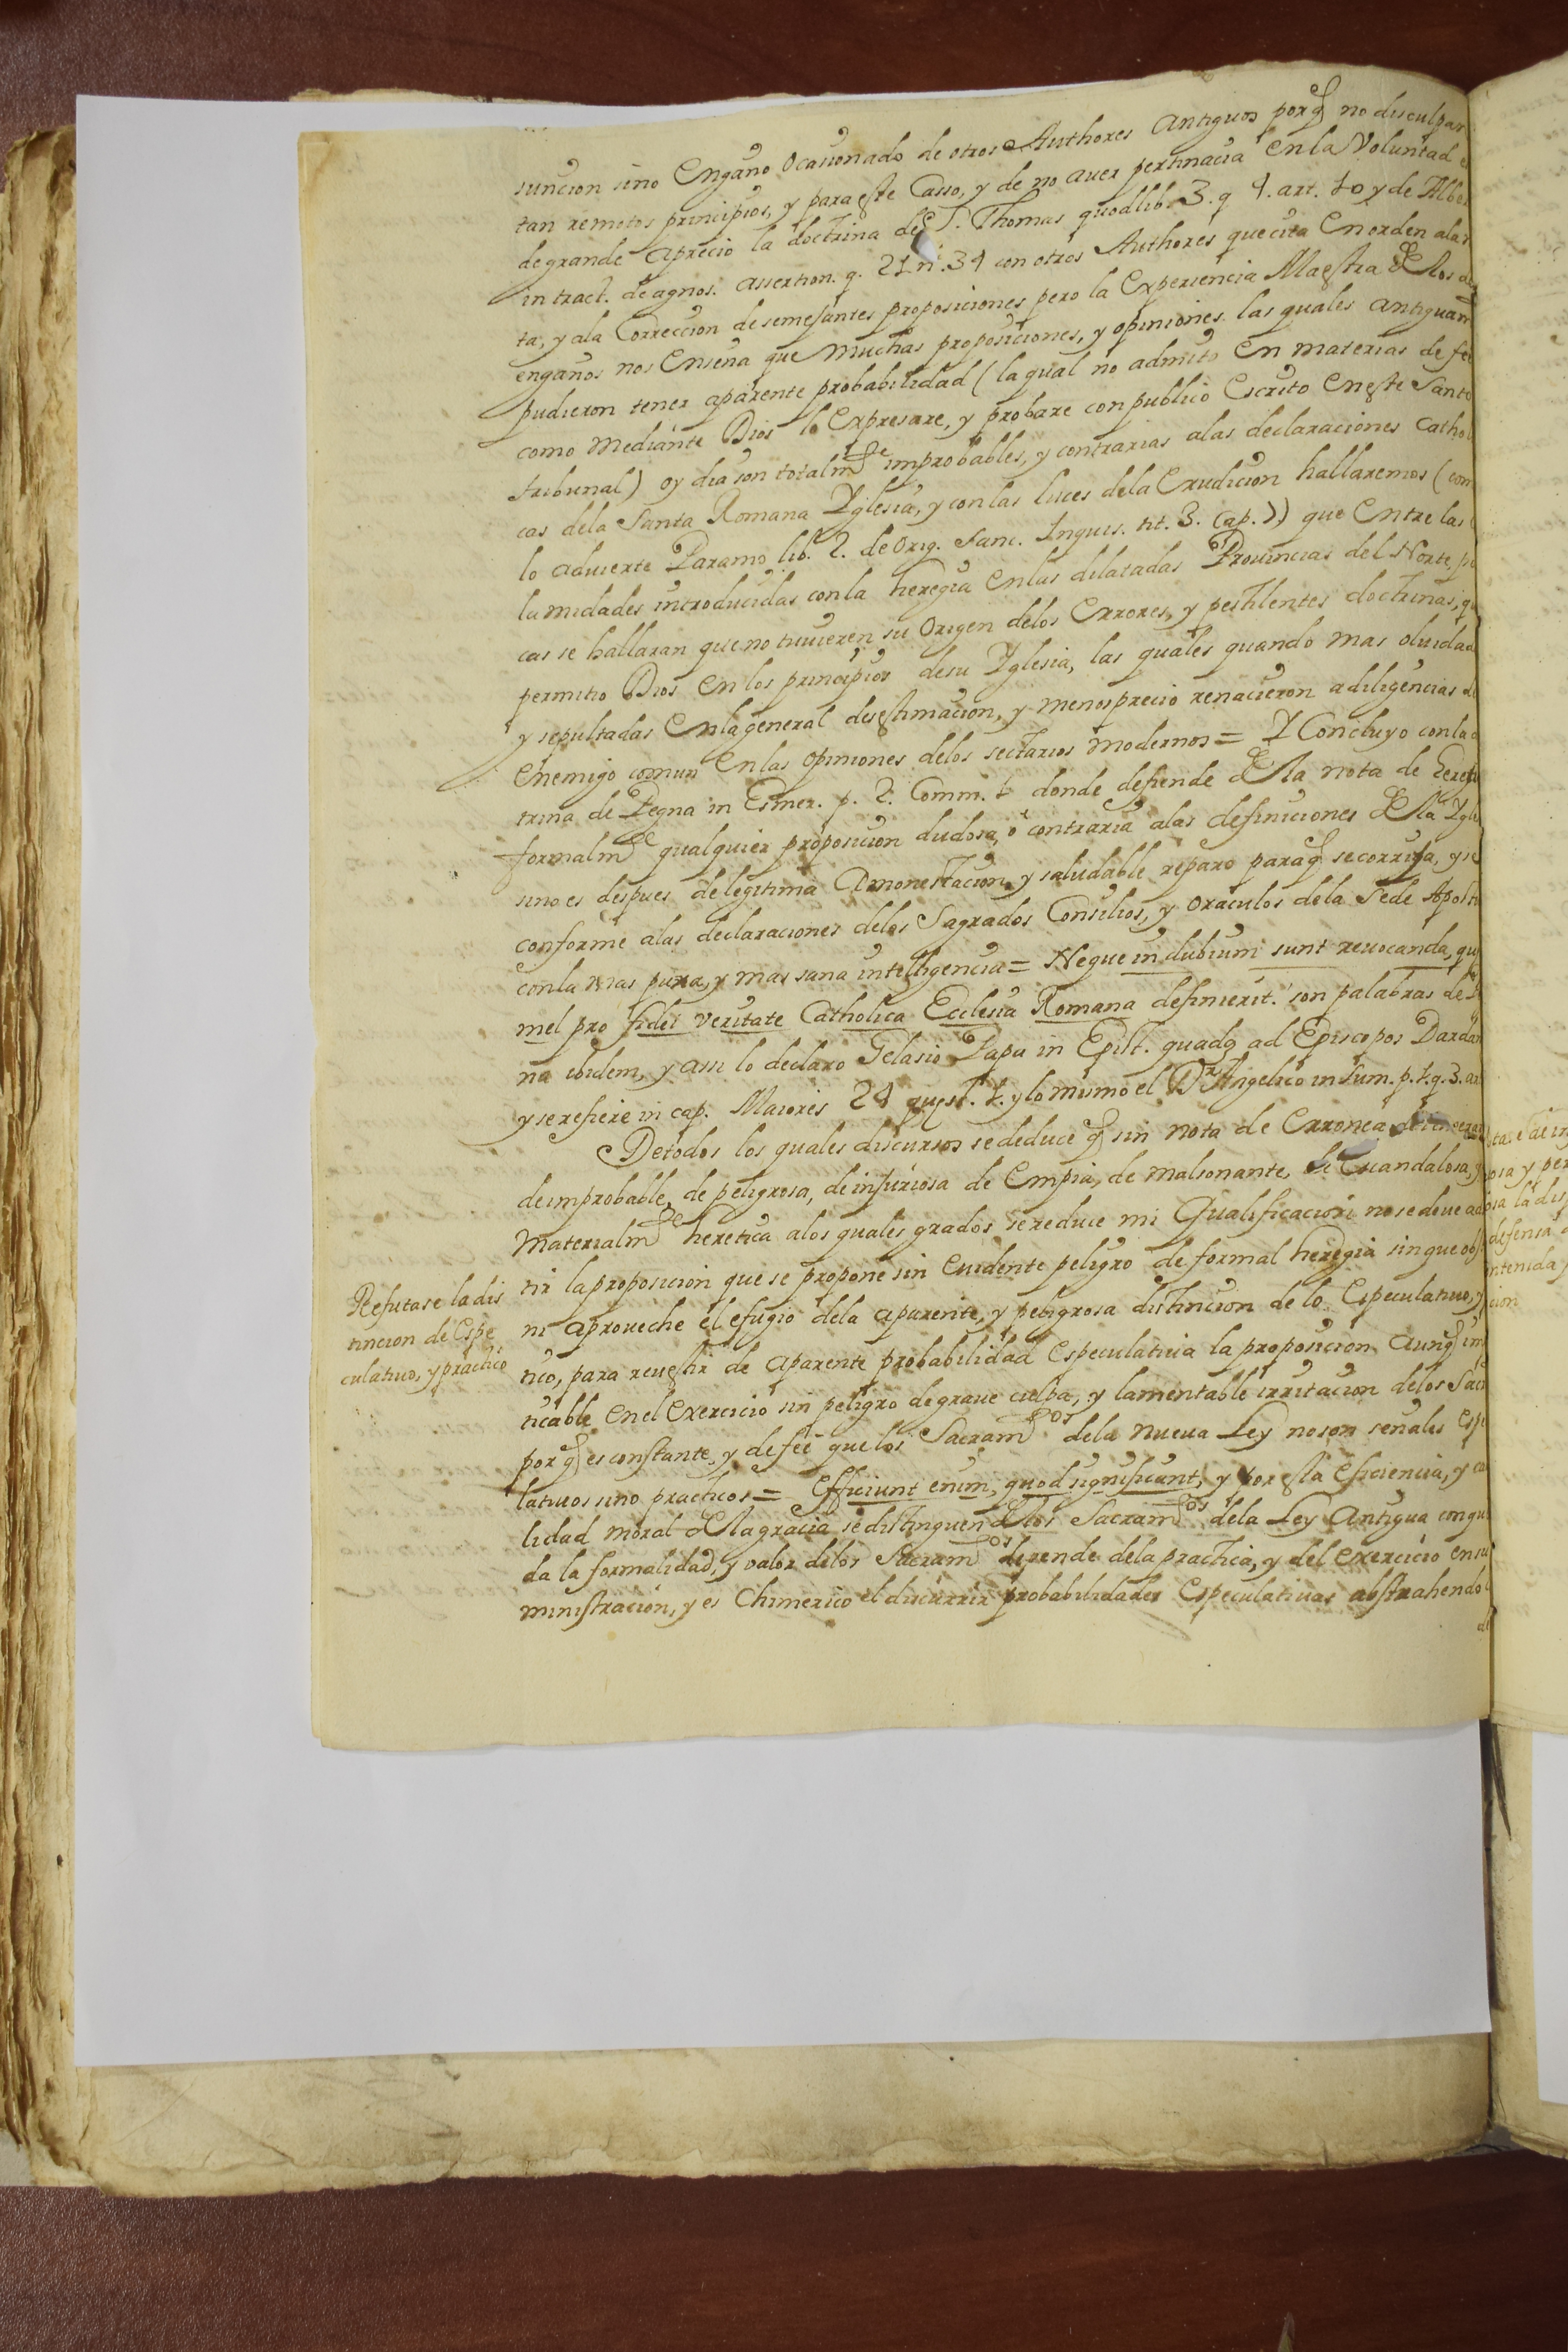 suncion sino Engaño Ocasionado de otros Authores Antiguos porq̃ no disculpan
tan remotos principios, y para este Casso, y de no aver pertinacia En la Voluntad
de grande aprecio la doctrina de S. Thomas quodlib. 3. q 4. art. 10 y de Alber
in tract. de agnos. assertion. q. 21 n. 34 con otros Authores que cita En orden a la
ta, y a la Correccion de semejantes proposiciones pero la Experiencia Maestra de los
engaños nos Enseña que Muchas proposiciones, y opiniones las quales antiguam
pudieron tener aparente probabilidad (la qual no admito En materias de fe
como Mediante Dios lo Expresare, y probare con publico Escrito En este Santo
tribunal) oy dia son totalmte improbables, y contrarias a las declaraciones Catholi
cas de la Santa Romana Yglesia, y con las luces de la Erudicion hallaremos (com
lo advierte Paramo lib. 2. de Orig. Sanc. Inquis. tit. 3. Cap. )) que Entre las
lamidades introducidas con la heregia En las dilatadas Provincias del Norte, po
cas se hallaran que no tuvieren su Origen de los Errores, y pestilentes doctrinas, q
permitio Dios En los principios de su Yglesia, las quales quando mas olvidad
y sepultadas En la general desestimacion, y menosprecio renacieron a diligencias d
Enemigo comun En las Opiniones de los sectarios modernos = Y Concluyo con la
trina de Pegna in Esmer. p. 2. Comm. 1 donde defiende de la nota de
formalmte qualquier proposicion dudosa, o contraria a las definiciones de la Ygle
sino es despues de legitima Amonestacion, y saludable reparo para q̃ se corrija, y se
conforme a las declaraciones de los Sagrados Consilios, y Oraculos de la Sede Aposto
con la mas pura, y mas sana inteligencia = Neque in dubium sunt revocanda, qu
mel pro fidei veritate Catholica Ecclesia Romana definierit. son palabras de
na ibidem, y assi lo declaro Gelasio Papa in Epist. quadã ad Episcopos Dardan
y se refiere in cap. Maiores 24 quest. 1. y lo mismo el Dr Angelico in Sum. p. 1. q. 3. ar
De todos los quales discursos se deduce q̃ sin nota de Erronea
de improbable, de peligrosa, de injuriosa de Empia, de malsonante, de Escandalosa, y
Materialmte heretica a los quales grados se reduce mi Qualificacion no se deve ad
Refutase la dis
tincion de Espe
culativo, y practico
tir la proposicion que se propone sin Evidente peligro de formal heregia sin que obs
ni aproveche el efugio de la aparente, y peligrosa distincion de lo Especulativo, y
tico, para revestir de aparente probabilidad Especulativa la proposicion Aunq̃ im
ticable En el Exercicio sin peligro de grave culpa, y lamentable irritacion de los Sac
por q̃ es constante, y de feé que los Sacramtos de la nueva Ley no son señales Espe
lativos sino practicos = Efficiunt enim, quod significunt, y por esta Eficiencia, y ca
lidad moral de la gracia se distinguen de los Sacramtos de la Ley Antigua con que
da la formalidad, y valor de los Sacramtos depende de la practica, y del exercicio en su
ministración, y es Chimerico el discurrir probabilidades Especulativas abstrahendo